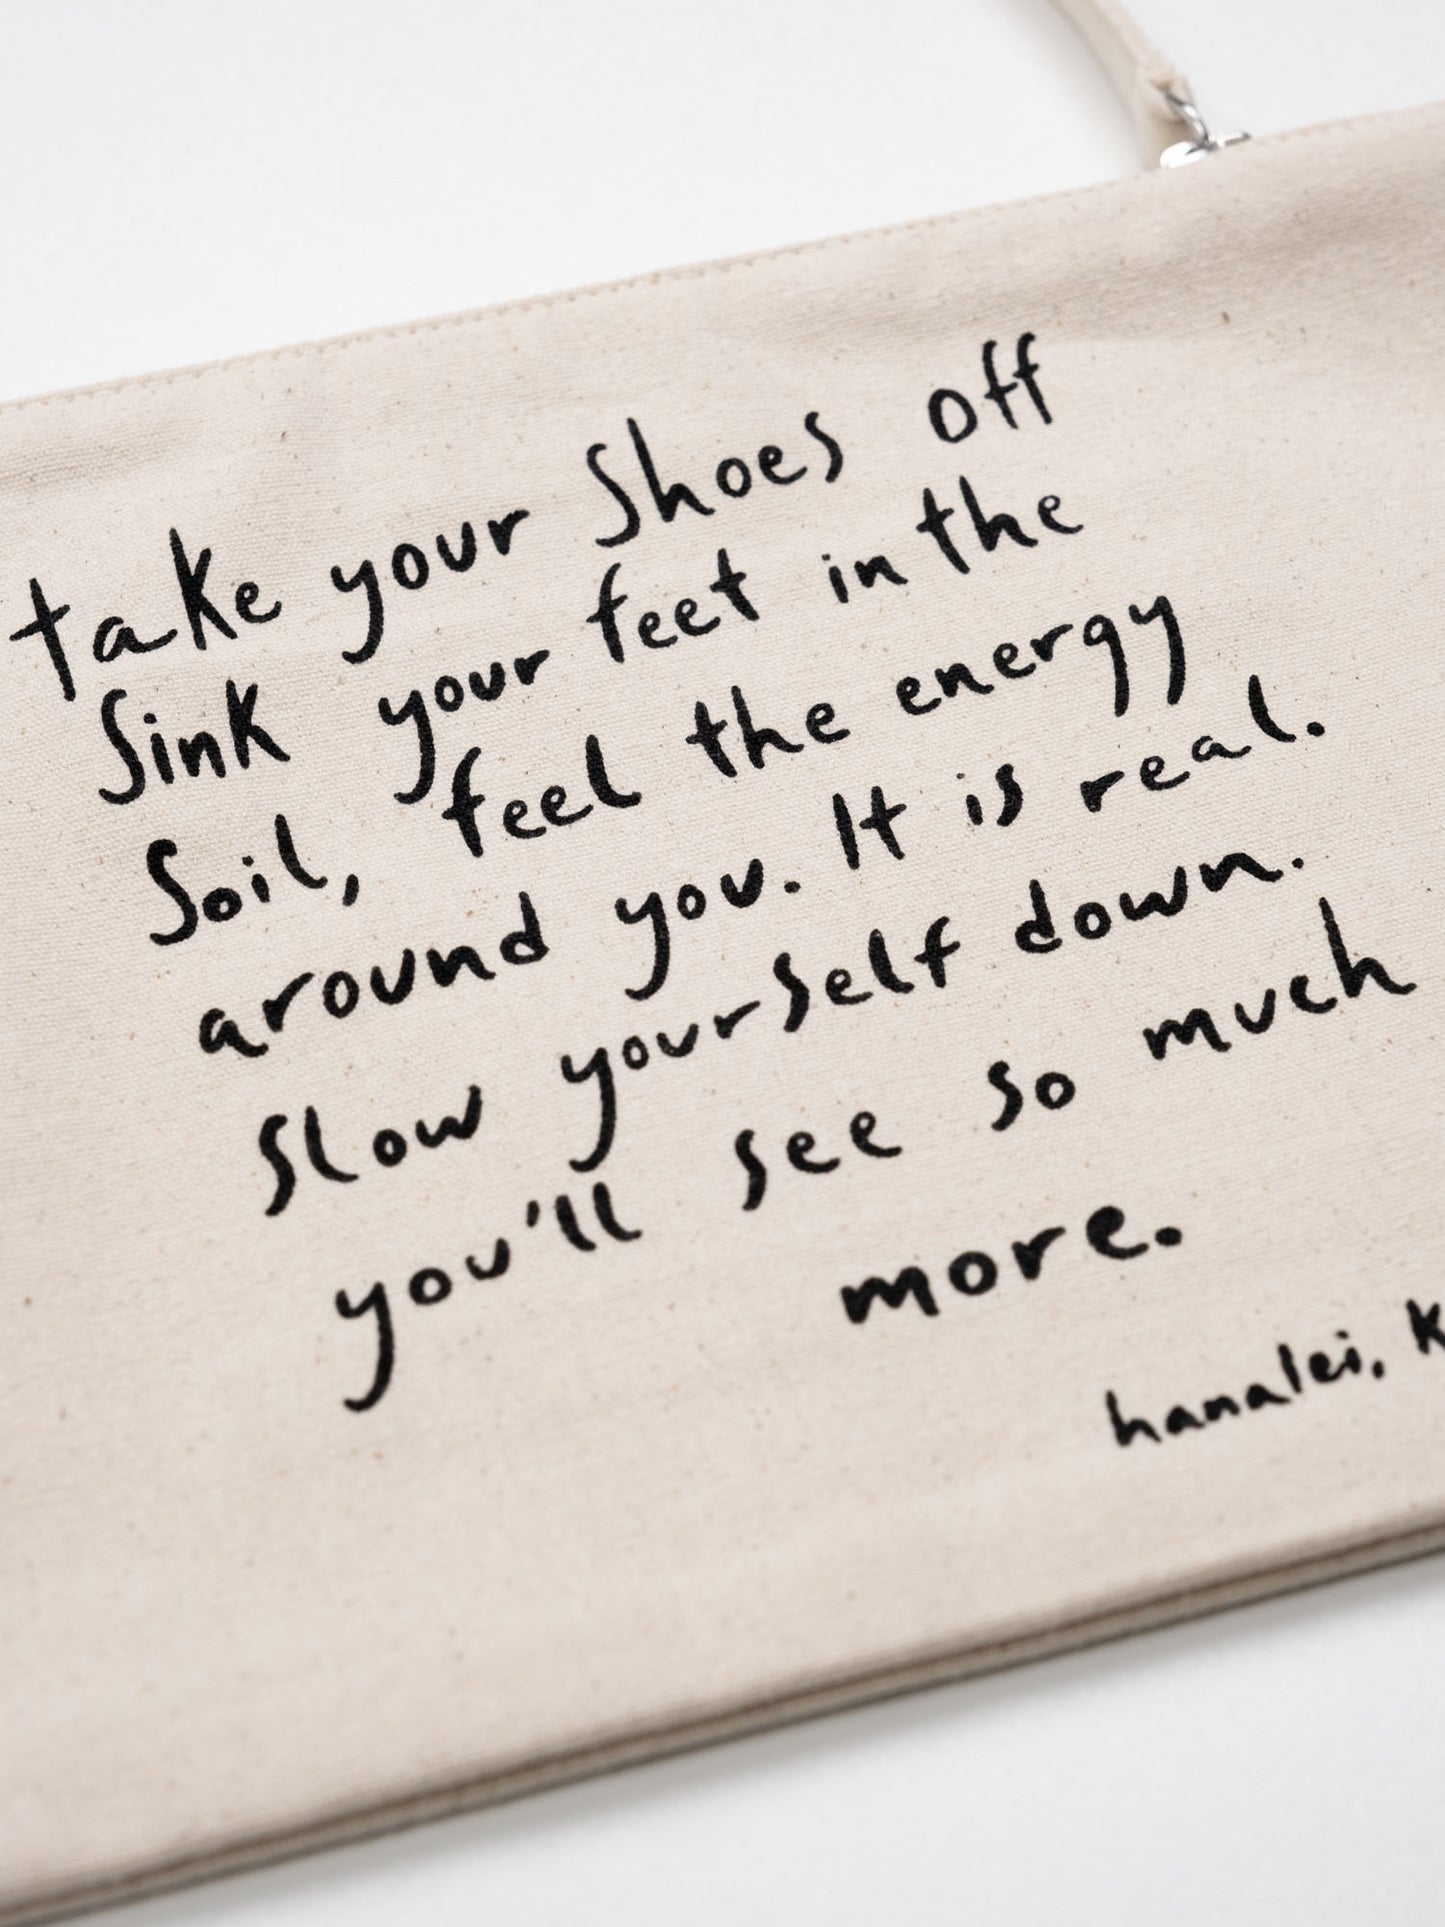 take your shoes off
Sink your feet in the
Soil, feel the energy
around you. It is real.
Slow yourself down.
you'll see so much
more.
hanalei, K